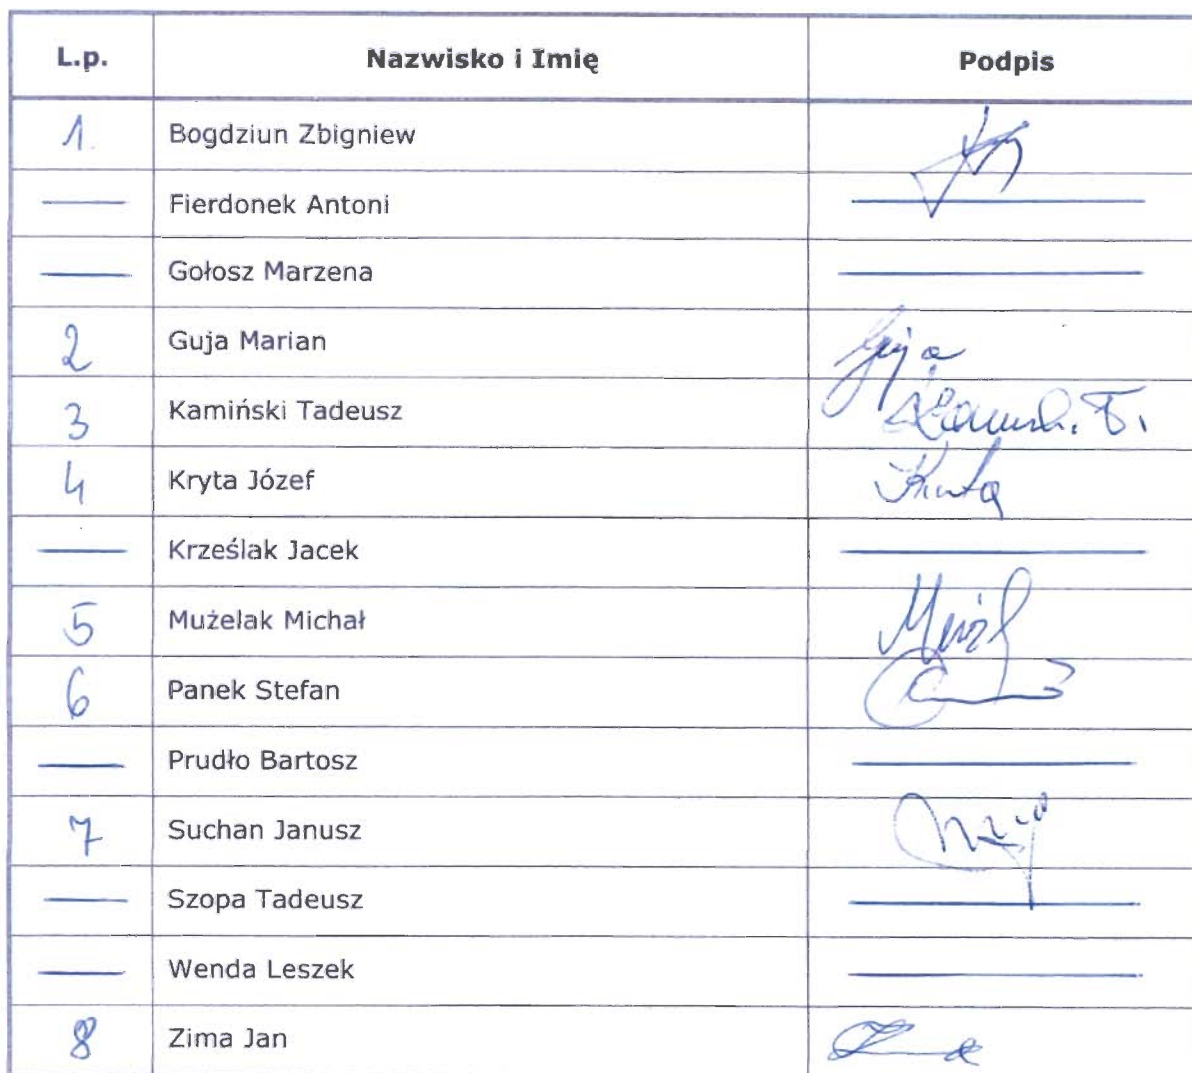 L.p. Nazwisko i Imię Podpis
1. Bogdziun Zbigniew
Fierdonek Antoni
Gołosz Marzena
2 Guja Marian Guja
3 Kamiński Tadeusz
4 Kryta Józef
Krześlak Jacek
5 Mużelak Michał
6 Panek Stefan
Prudło Bartosz
7 Suchan Janusz
Szopa Tadeusz
Wenda Leszek
8 Zima Jan